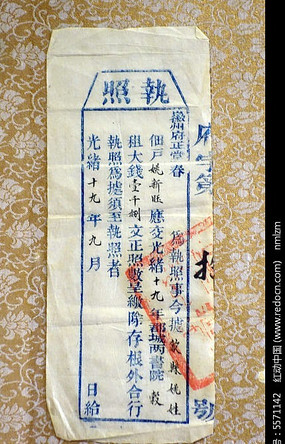 執照
府字第
拾
號
徽州府正堂春 為執照事今據歙縣姚姓
佃戶姚新旺應交光緒十九年郡城两書院穀
租大錢壹千捌文正照數呈繳除存根外合行
執照為據須至執照者
光緒十九年九月 日給
编号:5571142 红动中国 (www.redocn.com) nmlzm